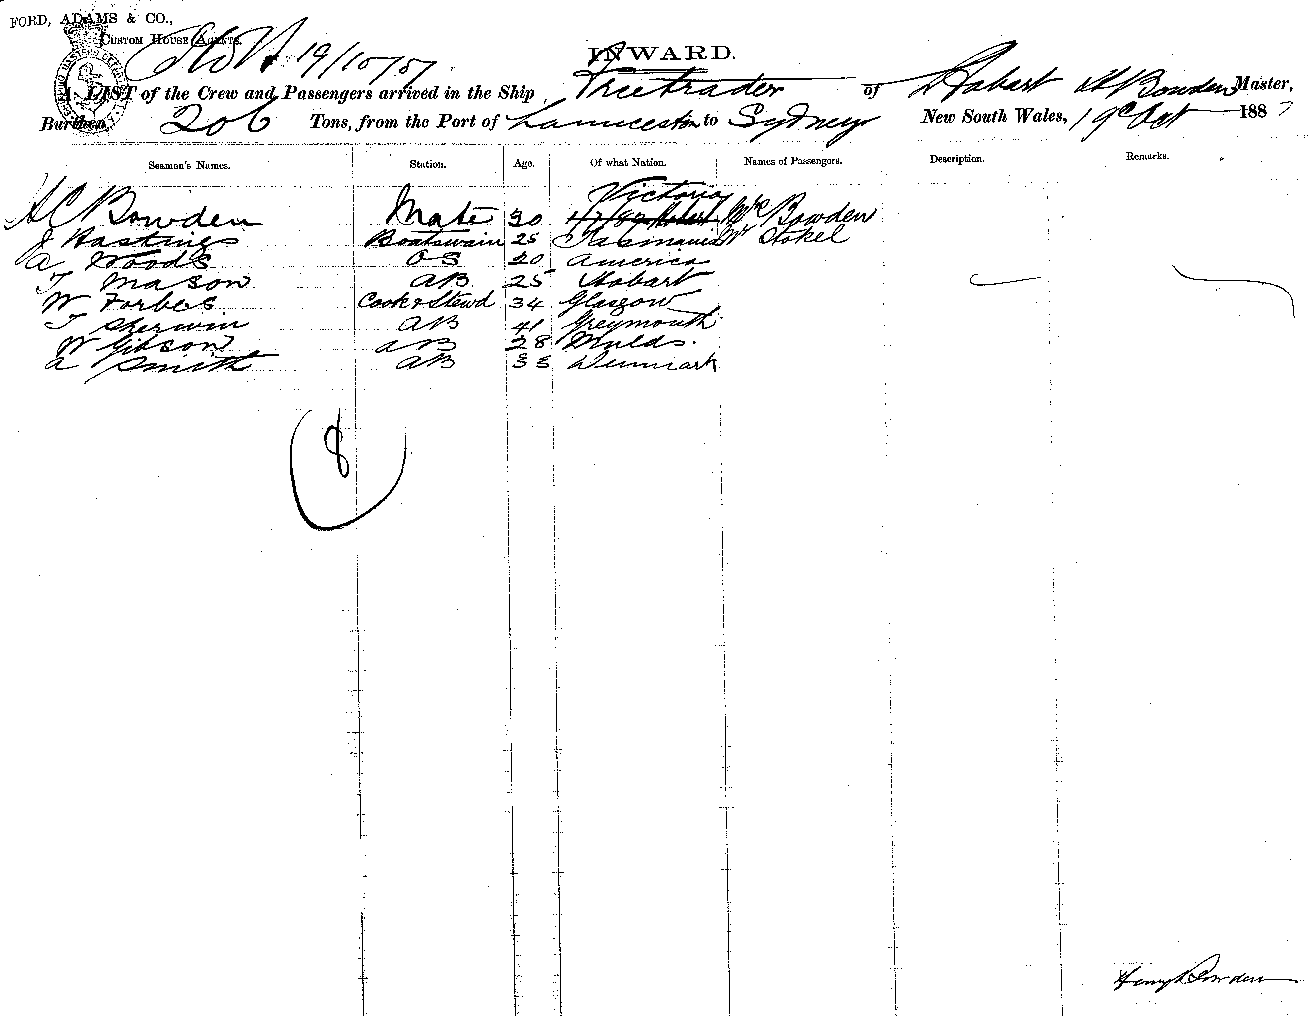 FORD, ADAMS & CO.,
CUSTOM HOUSE AGENTS.
19/10/87
INWARD.
A LIST of the Crew and Passengers arrived in the Ship Freetrader of Hobart H Bowden Master,
Burthen, 206 Tons, from the Port of Launceston to Sydney New South Wales, 19th Oct 1887
Seaman's Names. Station. Age. Of what Nation. Names of Passengers. Description. Remarks.
H C Bowden Mate 30 Victoria Mrs Bowden
J Hastings Boatswain 25 Tasmania Mr Stokel
A Woods OS 20 America
T Mason AB 25 Hobart
W Forbes Cook & Stewd 34 Glasgow
T Sherwin AB 41 Greymouth
W Gibson AB 28
A Smith AB 33 Denmark
8
Henry Bowden